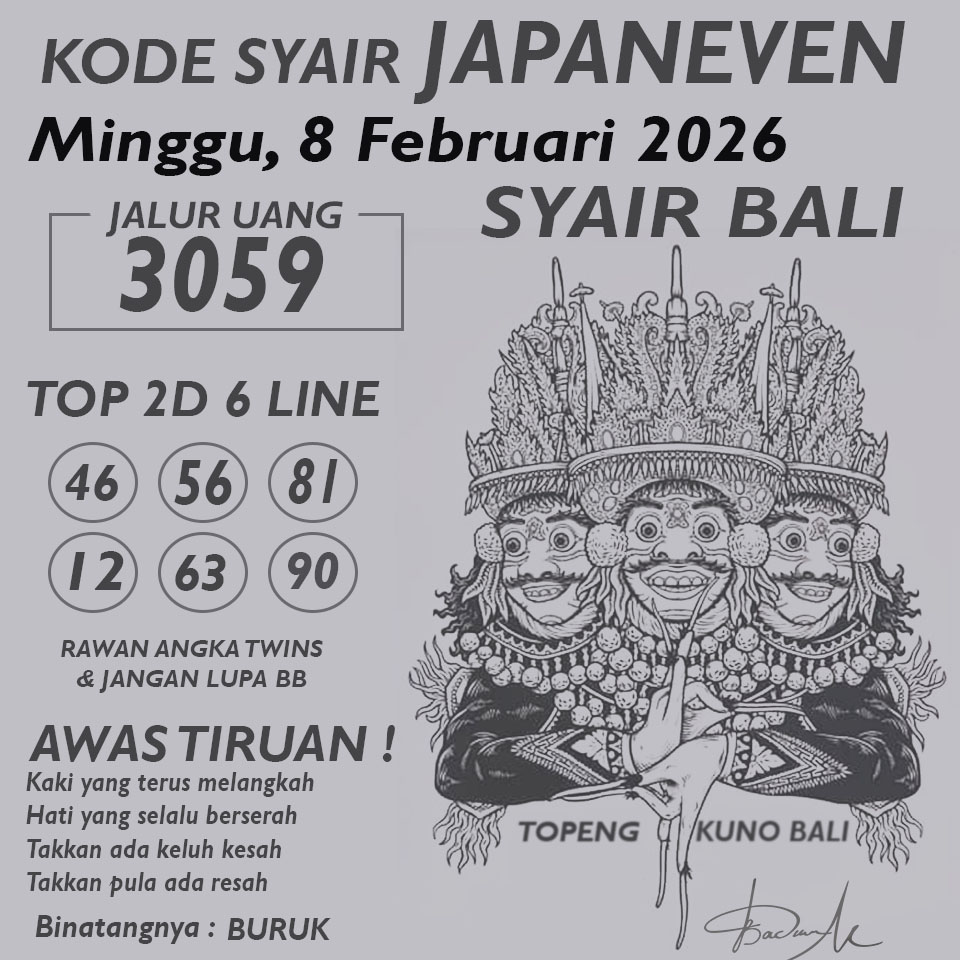 KODE SYAIR JAPANEVEN
Minggu, 8 Februari 2026
SYAIR BALI
JALUR UANG
3059
TOP 2D 6 LINE
46 56 81
12 63 90
RAWAN ANGKA TWINS
& JANGAN LUPA BB
AWAS TIRUAN !
Kaki yang terus melangkah
Hati yang selalu berserah
Takkan ada keluh kesah
Takkan pula ada resah
Binatangnya : BURUK
TOPENG KUNO BALI